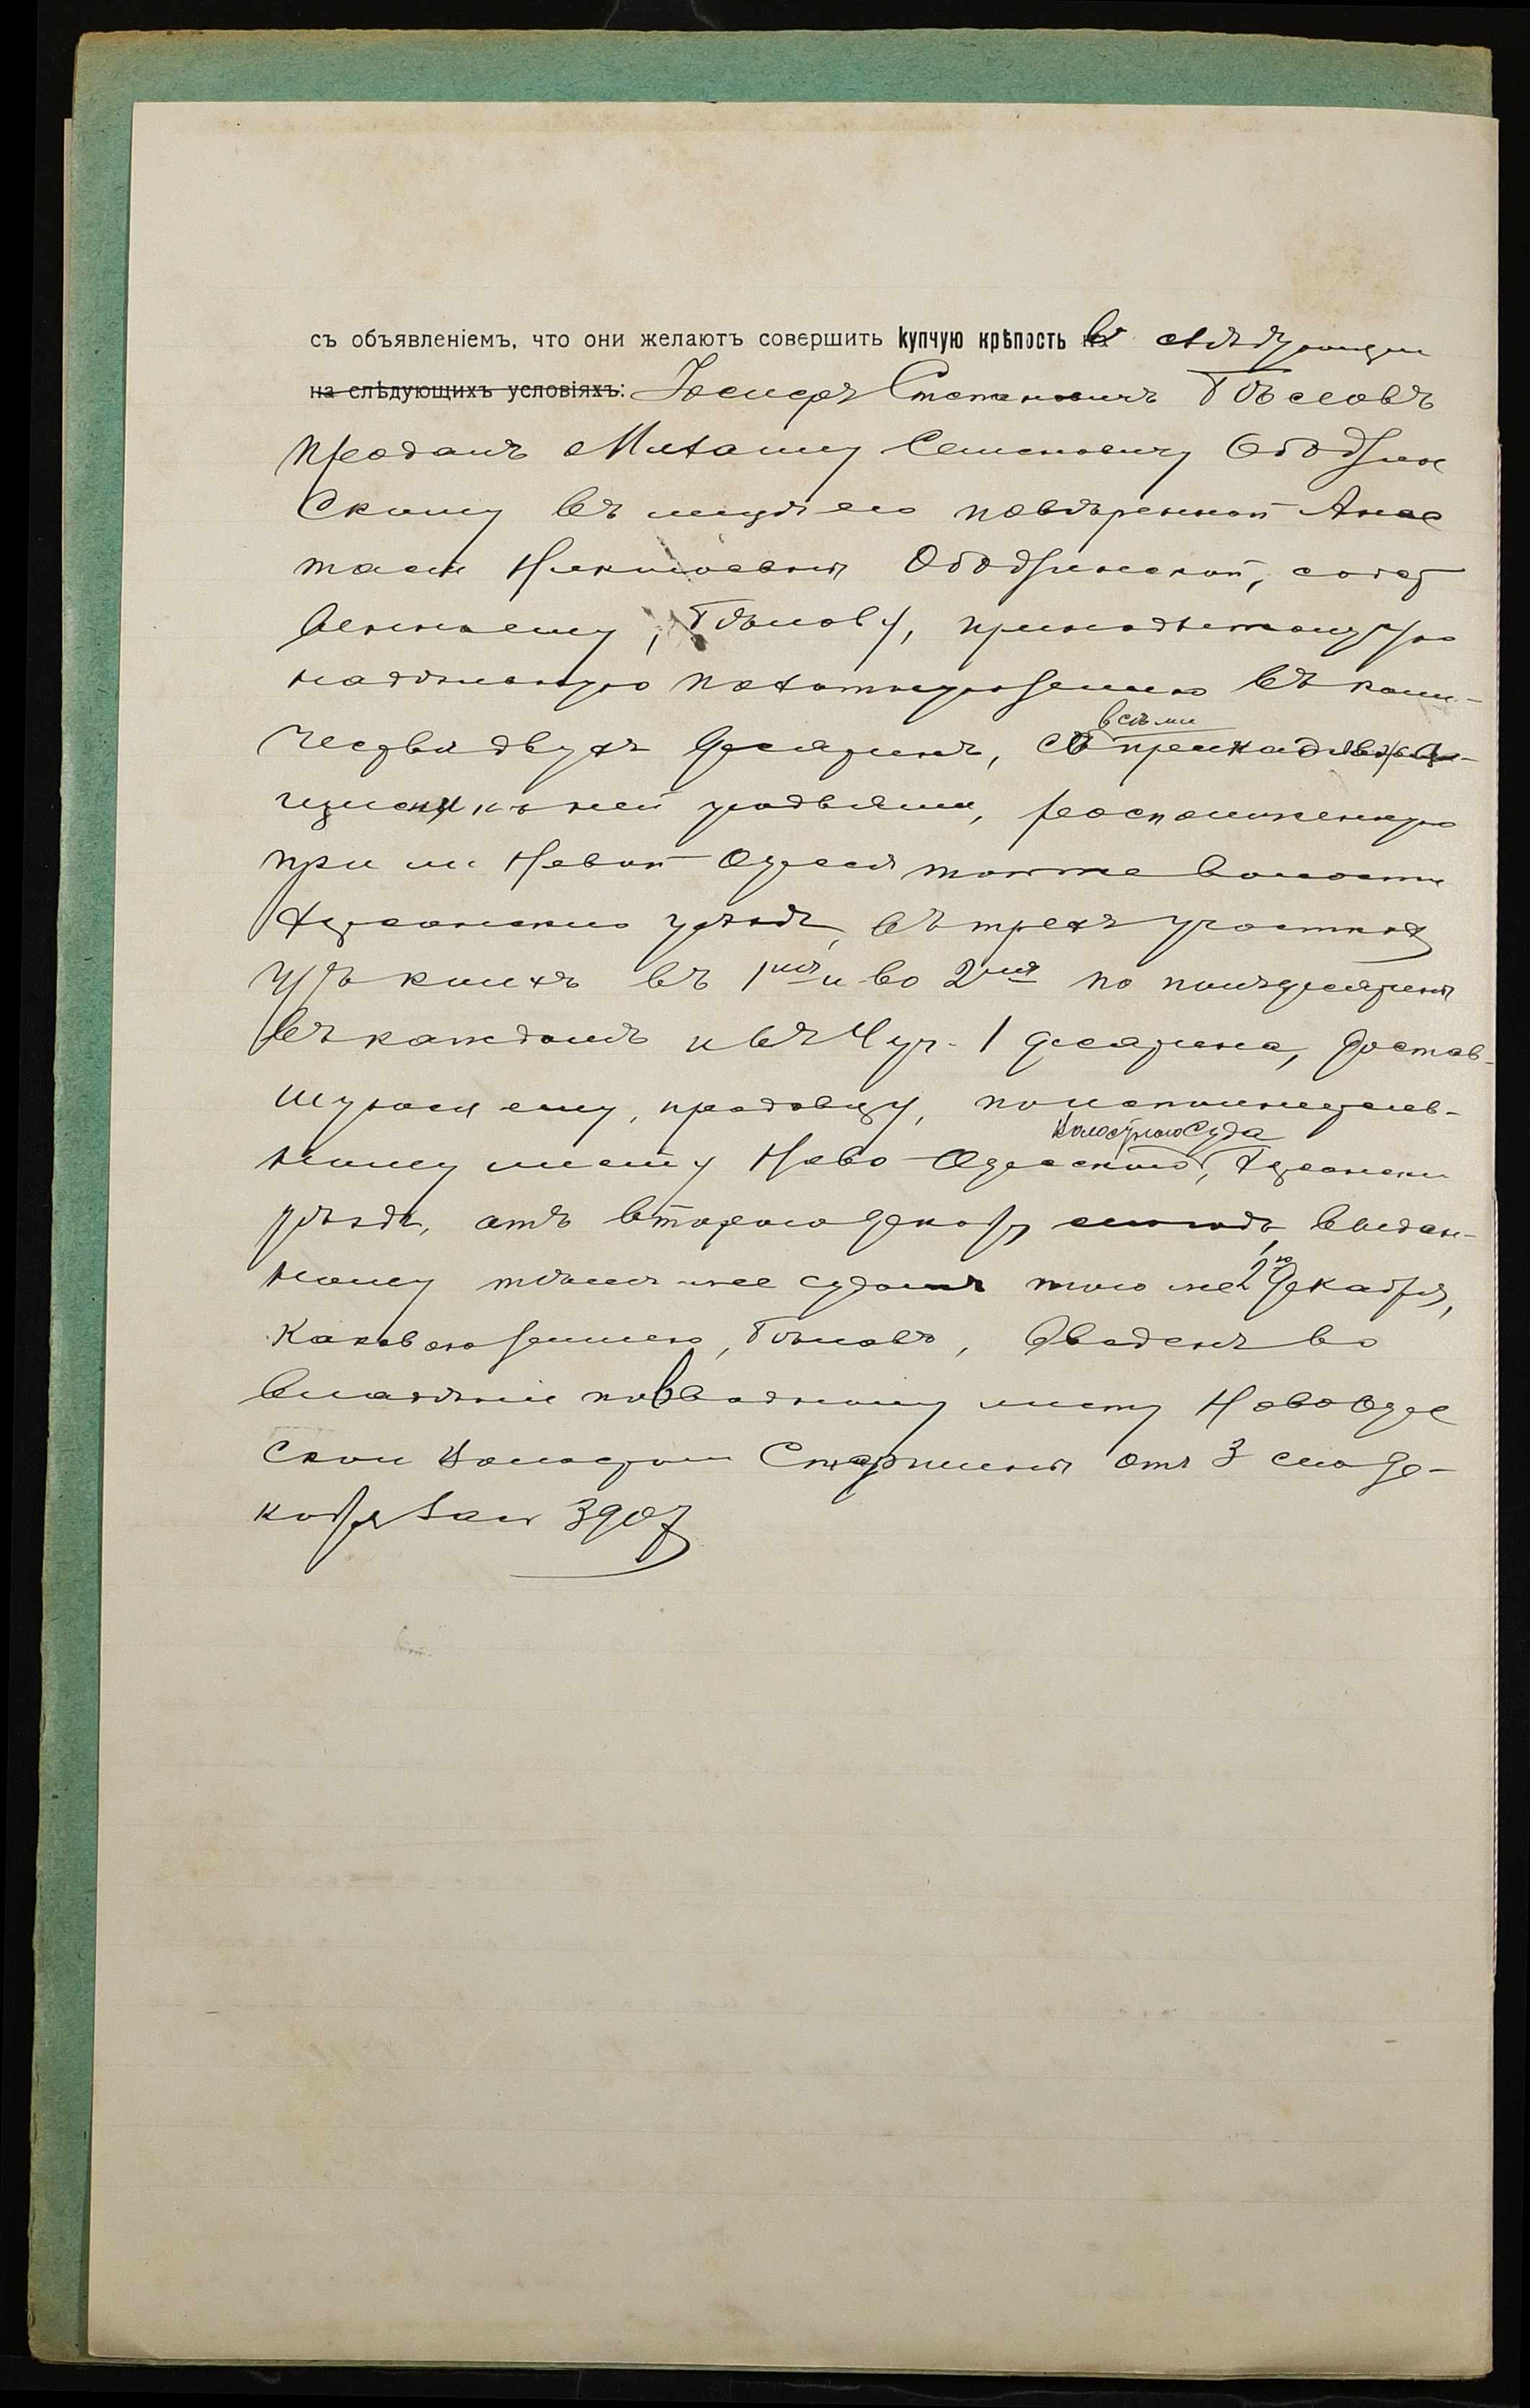 съ объявленіемъ, что они желаютъ совершить купчую крѣпость въ слѣдующем
на слѣдующихъ условіяхъ: Іосифъ Степановичъ Бѣловъ
продалъ Михаилу Семеновичу Ободзин
скому въ лицѣ его повѣренной Анас
тасіи Ободзинской,
Бѣлову, принадлежащую
надѣльную пахатную землю въ коли-
чествѣ двухъ десятинъ, со всѣми принадлежа-
щими къ ней угодьями, расположенную
при м. Новой Одессѣ той же волости
Херсонскаго уѣзда, въ трехъ участках
изъ коихъ въ 1мъ и во 2мъ по полъ десятины
въ каждомъ и въ 4 уч. 1 десятина, достав-
шуюся ему, продавцу, по исполнитель-
ному листу Ново-Одесскаго Волостного Суда, Херсонска
уѣзда, отъ второго декабр сего года, выдан-
ному тѣмъ же судомъ того же 2го декабря,
каковою землею, Бѣловъ, введенъ во
владѣніе по вводному листу Ново Одес
ской Волостного Старшины отъ 3 сего де-
кабря за № 3907